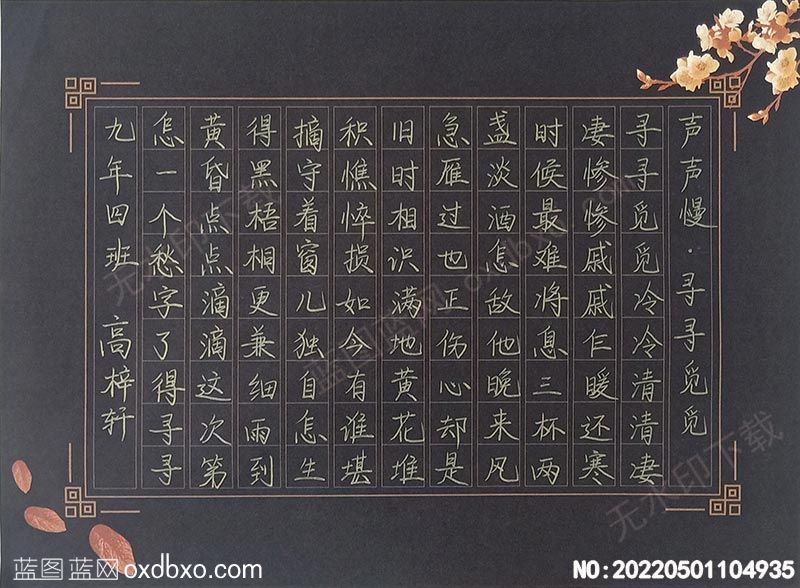 声声慢·寻寻觅觅
寻寻觅觅冷冷清清凄
凄惨惨戚戚乍暖还寒
时候最难将息三杯两
盏淡酒怎敌他晚来风
急雁过也正伤心却是
旧时相识满地黄花堆
积憔悴损如今有谁堪
摘守着窗儿独自怎生
得黑梧桐更兼细雨到
黄昏点点滴滴这次第
怎一个愁字了得寻寻
九年四班 高梓轩
无水印下载
蓝图蓝网
oxdbxo.com
无水印下载
无水印下载
蓝图蓝网oxdbxo.com
NO:20220501104935